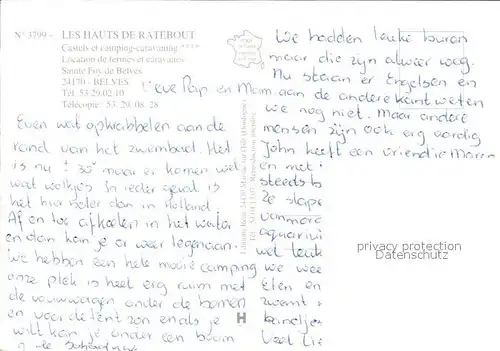 N° 3799 - LES HAUTS DE RATEBOUT
Castels et camping-caravaning ****
Location de tentes et caravanes
Sainte Foy de Belves
24170 - BELVES
Tél. 53.29.02.10
Télécopie: 53. 29. 08. 28
Lieve Pap en Mam
Even wat opkrabbelen aan de
rand van het zwembad. Het
is nu ± 30° maar er komen wel
wat wolkjes. In ieder geval is
het hier beter dan in Holland.
Af en toe afkoelen in het water
en dan kan je er weer tegenaan.
We hebben een hele mooie camping
onze plek is heel erg ruim met
de vouwwagen onder de bomen
en voor de tent zon en als je
wilt kan je onder een boom
We hadden leuke buren
maar die zijn alweer weg.
Nu staan er Engelsen en
aan de andere kant weten
we nog niet. Maar andere
mensen zijn ook erg aardig
John heeft een vriendje Maren
en met
steeds b
2e slape
vanmore
aquariu
wel leuk
we wee
Eten en
zwemt
bandjes
Veel Lie
privacy protection
Datenschutz